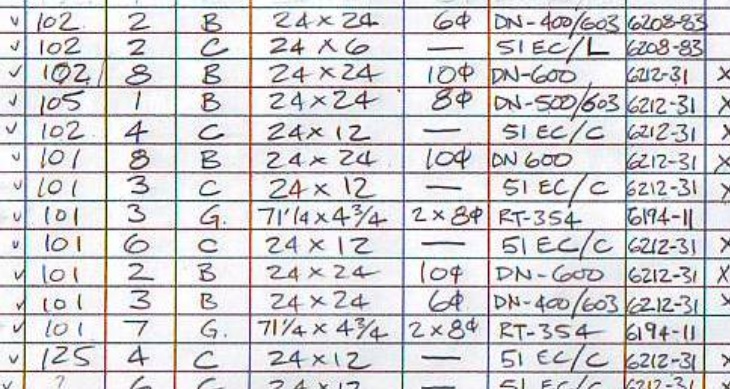 ✓ 102 2 B 24 x 24 6ϕ DN-400/603 6208-83
✓ 102 2 C 24 x 6 — 51 EC/L 6208-83
✓ 102/ 8 B 24 x 24 10ϕ DN-600 6212-31 X
✓ 105 1 B 24 x 24 8ϕ DN-500/603 6212-31 X
✓ 102 4 C 24 x 12 — 51 EC/C 6212-31 X
✓ 101 8 B 24 x 24 10ϕ DN 600 6212-31 X
✓ 101 3 C 24 x 12 — 51 EC/C 6212-31 X
✓ 101 3 G. 71 1/4 x 4 3/4 2 x 8ϕ RT-354 6194-11
✓ 101 6 C 24 x 12 — 51 EC/C 6212-31 X
✓ 101 2 B 24 x 24 10ϕ DN-600 6212-31 X
✓ 101 3 B 24 x 24 6ϕ DN-400/603 6212-31 X
✓ 101 7 G. 71 1/4 x 4 3/4 2 x 8ϕ RT-354 6194-11
✓ 125 4 C 24 x 12 — 51 EC/C 6212-31 X
✓ 6 C 24 x 12 — 51 EC/C 6212-31 X